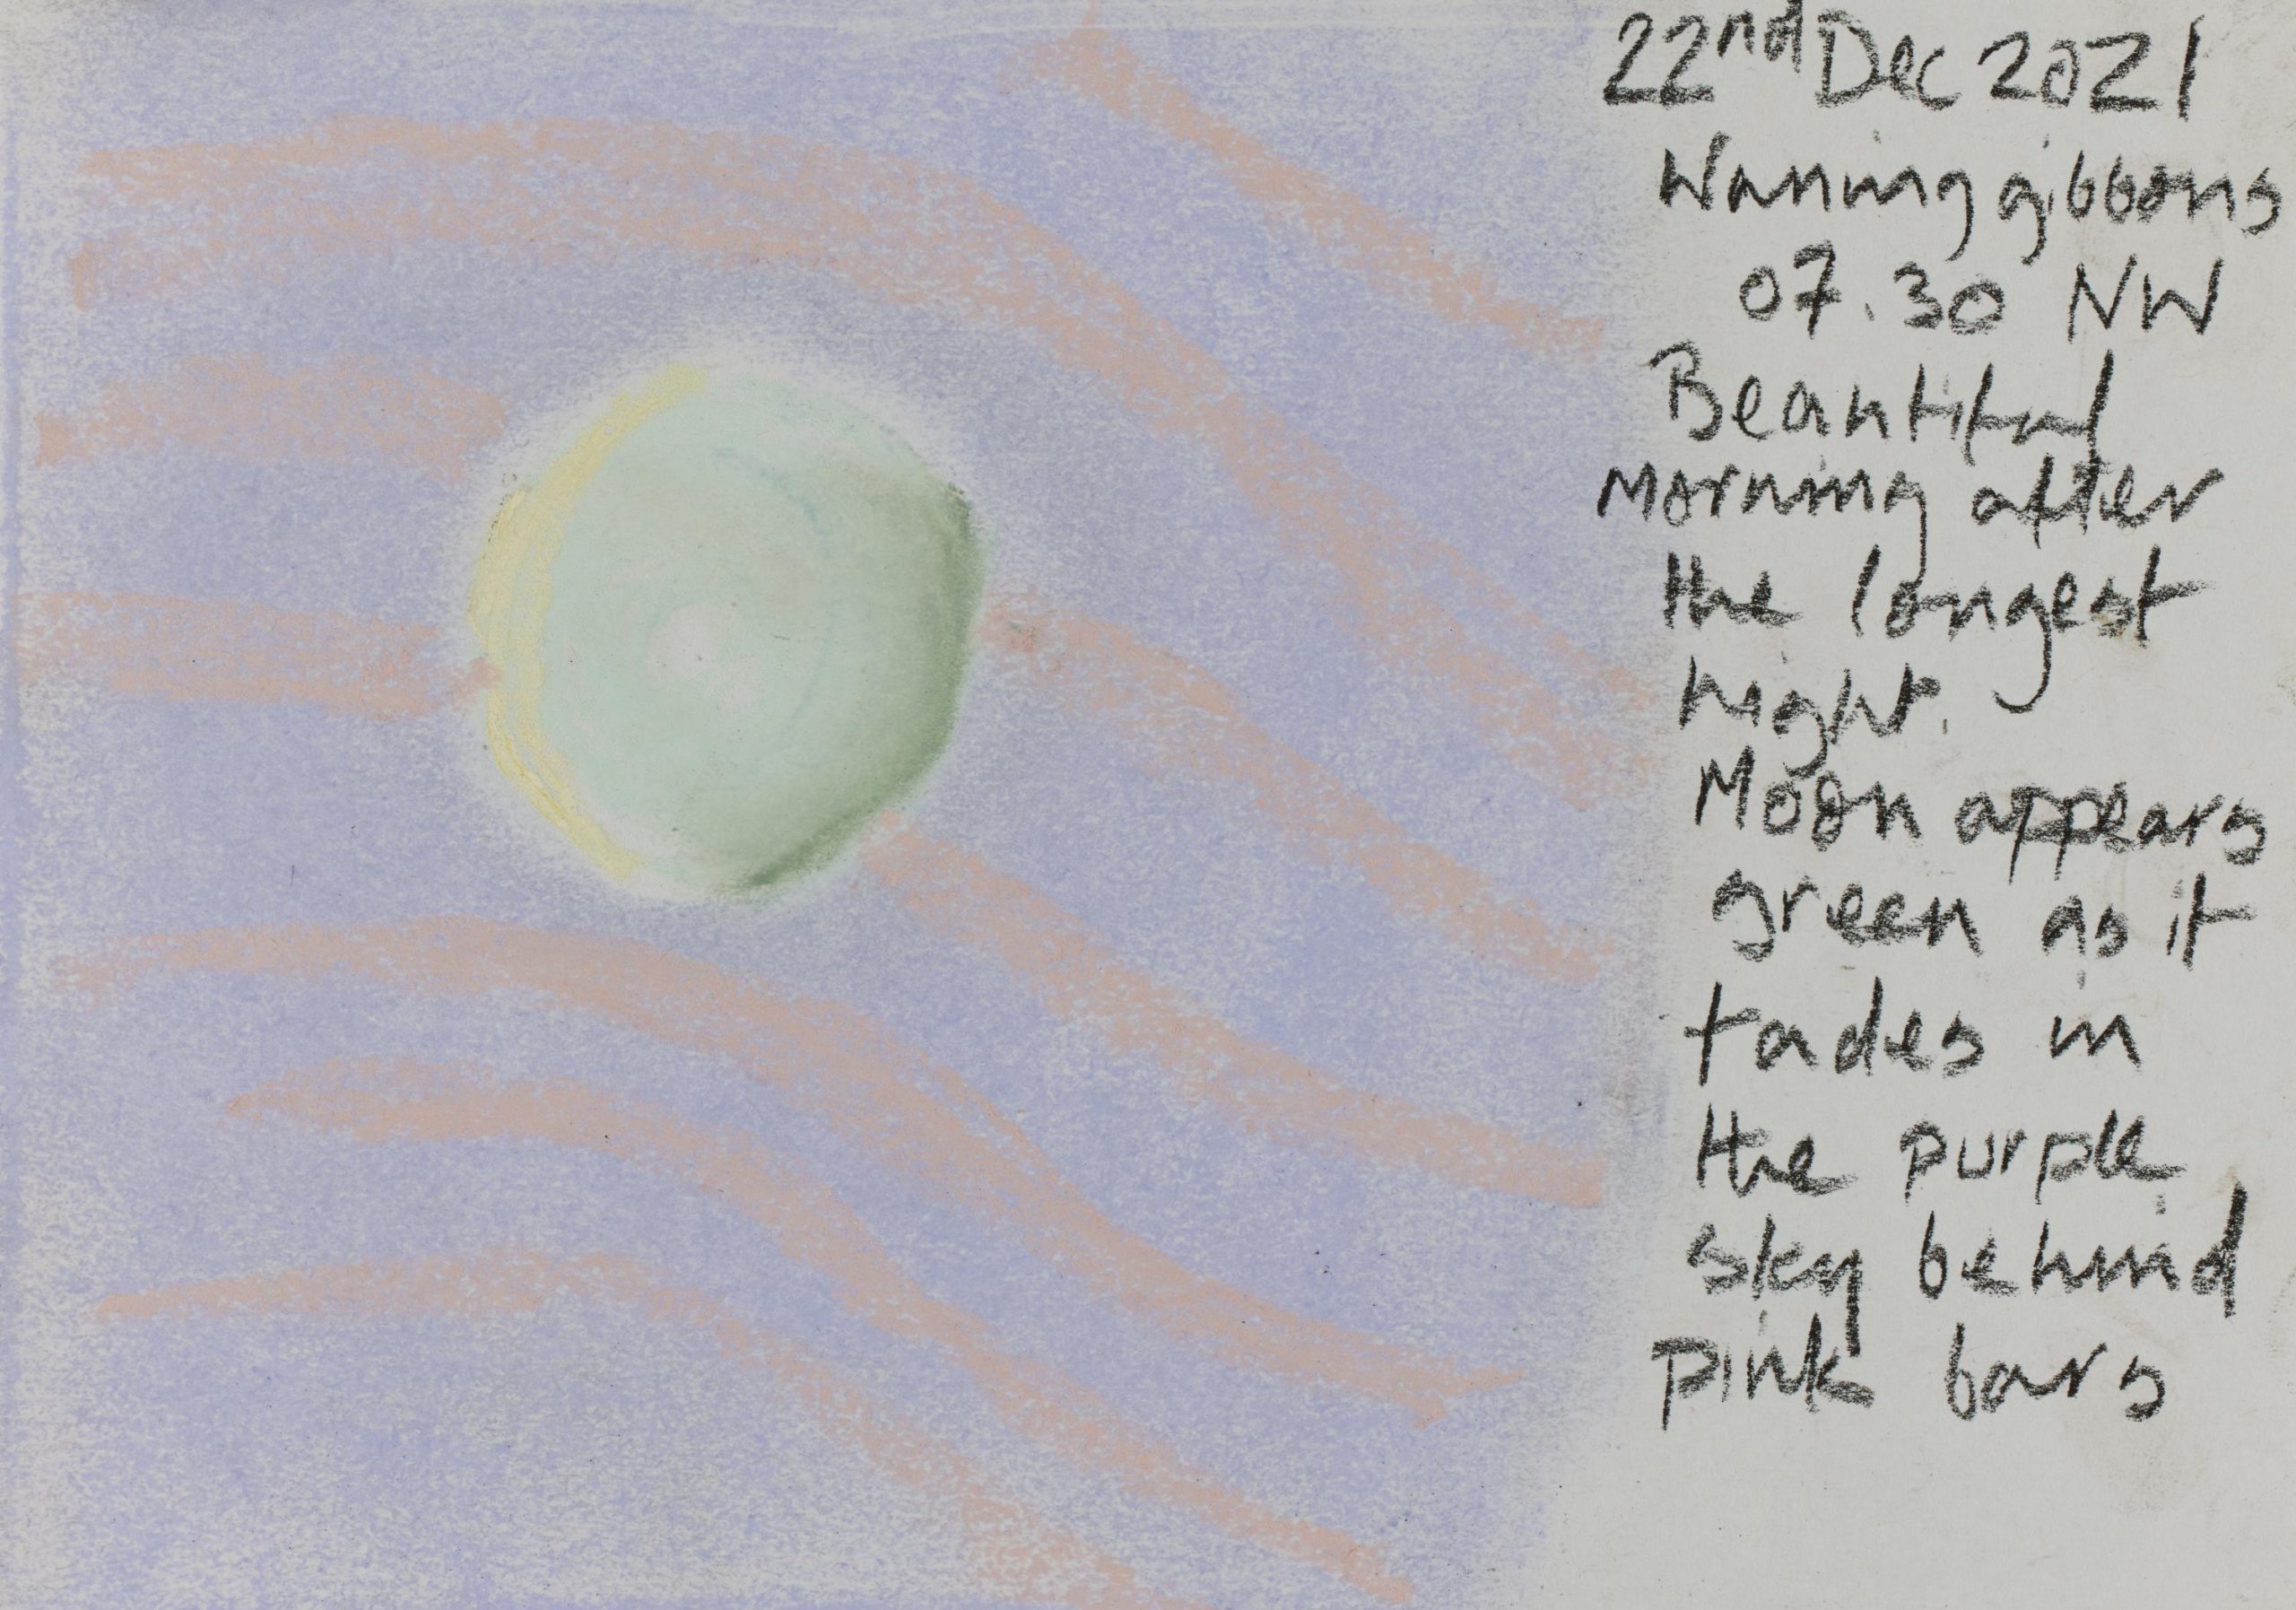 22nd Dec 2021
Waning gibbons
07.30 NW
Beautiful
Morning after
the longest
night.
Moon appears
green as it
fades in
the purple
sky behind
pink bars